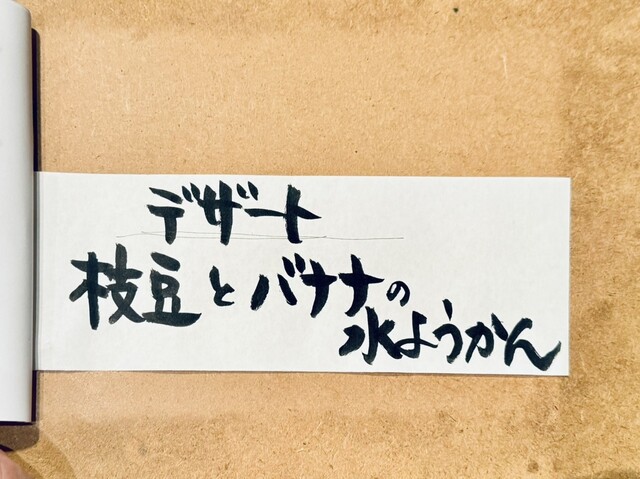 デザート
枝豆とバナナの
水ようかん